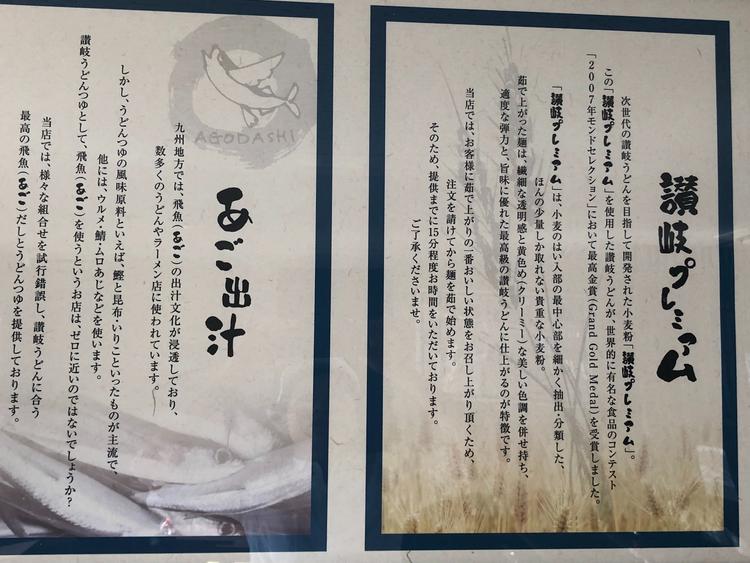 讃岐プレミアム
次世代の讃岐うどんを目指して開発された小麦粉「讃岐プレミアム」。
この「讃岐プレミアム」を使用した讃岐うどんが、世界的に有名な食品のコンテスト
「2007年モンドセレクション」において最高金賞(Grand Gold Medal)を受賞しました。
「讃岐プレミアム」は、小麦のはい入部の最中心部を細かく抽出・分類した、
ほんの少量しか取れない貴重な小麦粉。
茹で上がった麺は、繊細な透明感と黄色め(クリーミー)な美しい色調を併せ持ち、
適度な弾力と、旨味に優れた最高級の讃岐うどんに仕上がるのが特徴です。
当店では、お客様に茹で上がりの一番おいしい状態をお召し上がり頂くため、
注文を請けてから麺を茹で始めます。
そのため、提供までに15分程度お時間をいただいております。
ご了承くださいませ。
AGODASHI
あご出汁
九州地方では、飛魚(あご)の出汁文化が浸透しており、
数多くのうどんやラーメン店に使われています。
しかし、うどんつゆの風味原料といえば、鰹と昆布・いりこといったものが主流で、
他には、ウルメ・鯖・ムロあじなどを使います。
讃岐うどんつゆとして、飛魚(あご)を使うというお店は、ゼロに近いのではないでしょうか?
当店では、様々な組合せを試行錯誤し、讃岐うどんに合う
最高の飛魚(あご)だしとうどんつゆを提供しております。